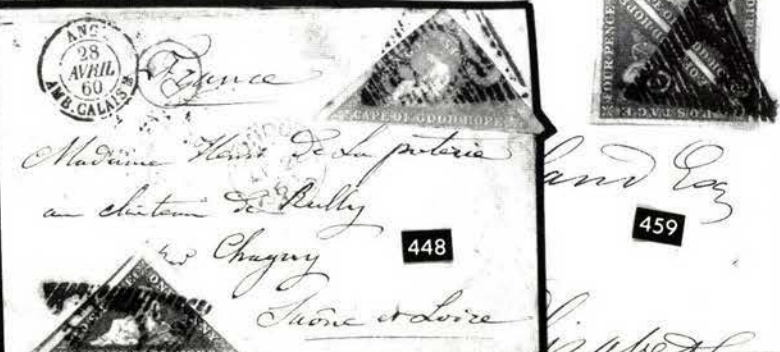 ANG.
28
AVRIL
60
AMB. CALAIS
France
CAPE OF GOOD HOPE
Madame Henri De La poterie
au château de Rully
Chagny
Saône et Loire
448
ONE PENNY
FOUR PENCE
POSTAGE
and Esq
459